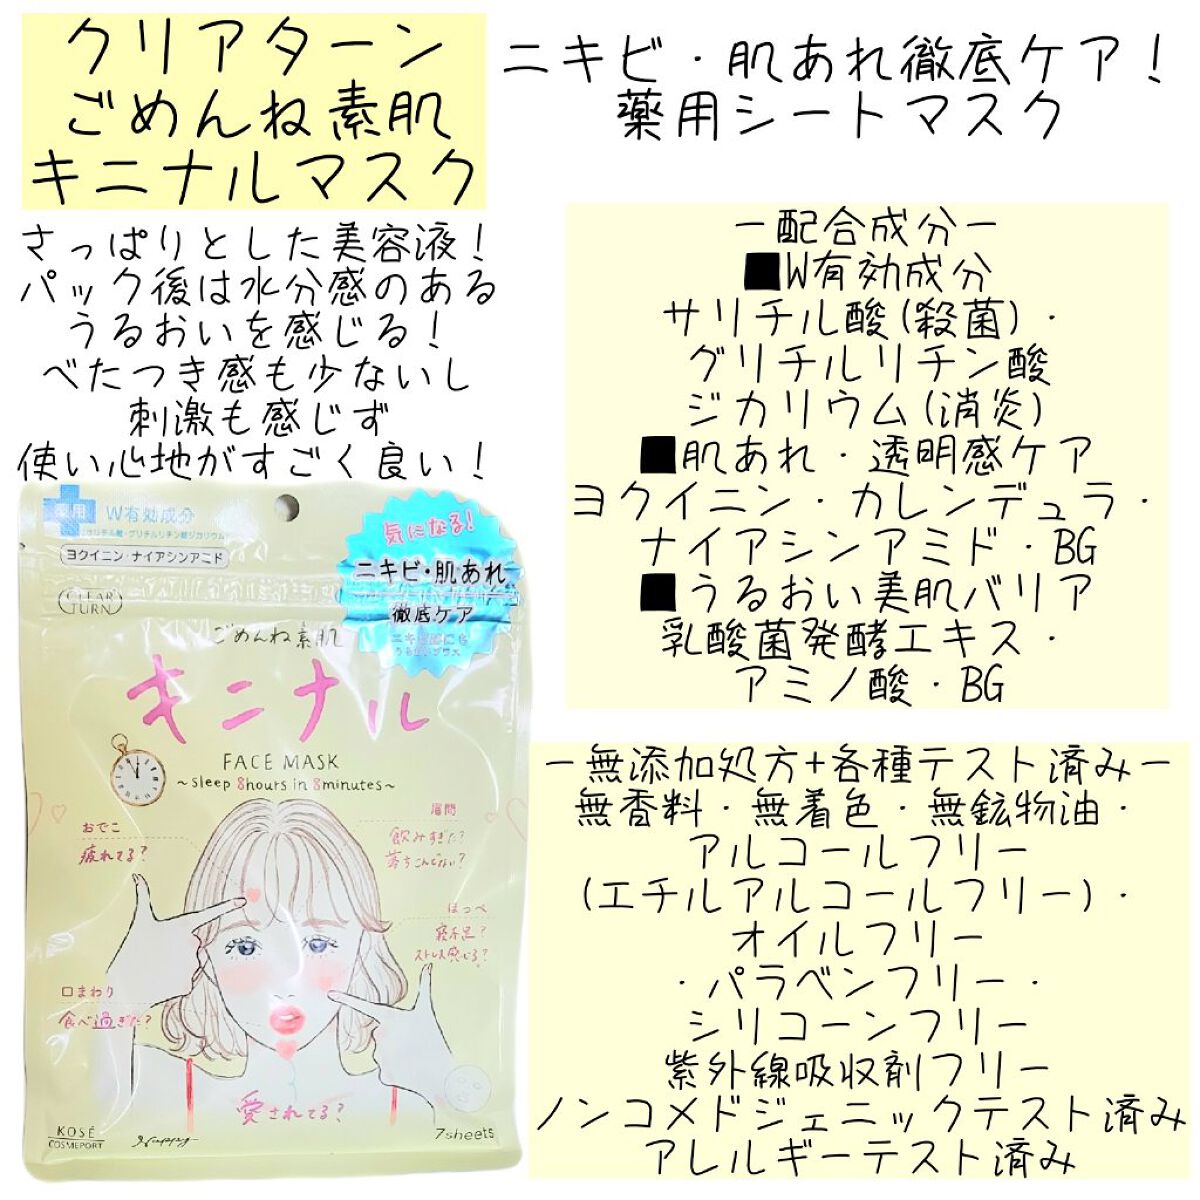 クリアターン
ごめんね素肌
キニナルマスク
ニキビ・肌あれ徹底ケア！
薬用シートマスク
さっぱりとした美容液！
パック後は水分感のある
うるおいを感じる！
べたつき感も少ないし
刺激も感じず
使い心地がすごく良い！
ー配合成分ー
■W有効成分
サリチル酸(殺菌)・
グリチルリチン酸
ジカリウム(消炎)
■肌あれ・透明感ケア
ヨクイニン・カレンデュラ・
ナイアシンアミド・BG
■うるおい美肌バリア
乳酸菌発酵エキス・
アミノ酸・BG
ー無添加処方+各種テスト済みー
無香料・無着色・無鉱物油・
アルコールフリー
(エチルアルコールフリー)・
オイルフリー
・パラベンフリー・
シリコーンフリー
紫外線吸収剤フリー
ノンコメドジェニックテスト済み
アレルギーテスト済み
薬用
W有効成分
サリチル酸・グリチルリチン酸ジカリウム
ヨクイニン・ナイアシンアミド
CLEAR
TURN
気になる！
ニキビ・肌あれ
徹底ケア
ごめんね素肌
キニナル
FACE MASK
～sleep 8hours in 8minutes～
おでこ
疲れてる?
眉間
飲みすぎた?
落ちこんでない?
ほっぺ
寝不足?
ストレス感じる?
口まわり
食べ過ぎた?
愛されてる?
KOSÉ
COSMEPORT
7sheets